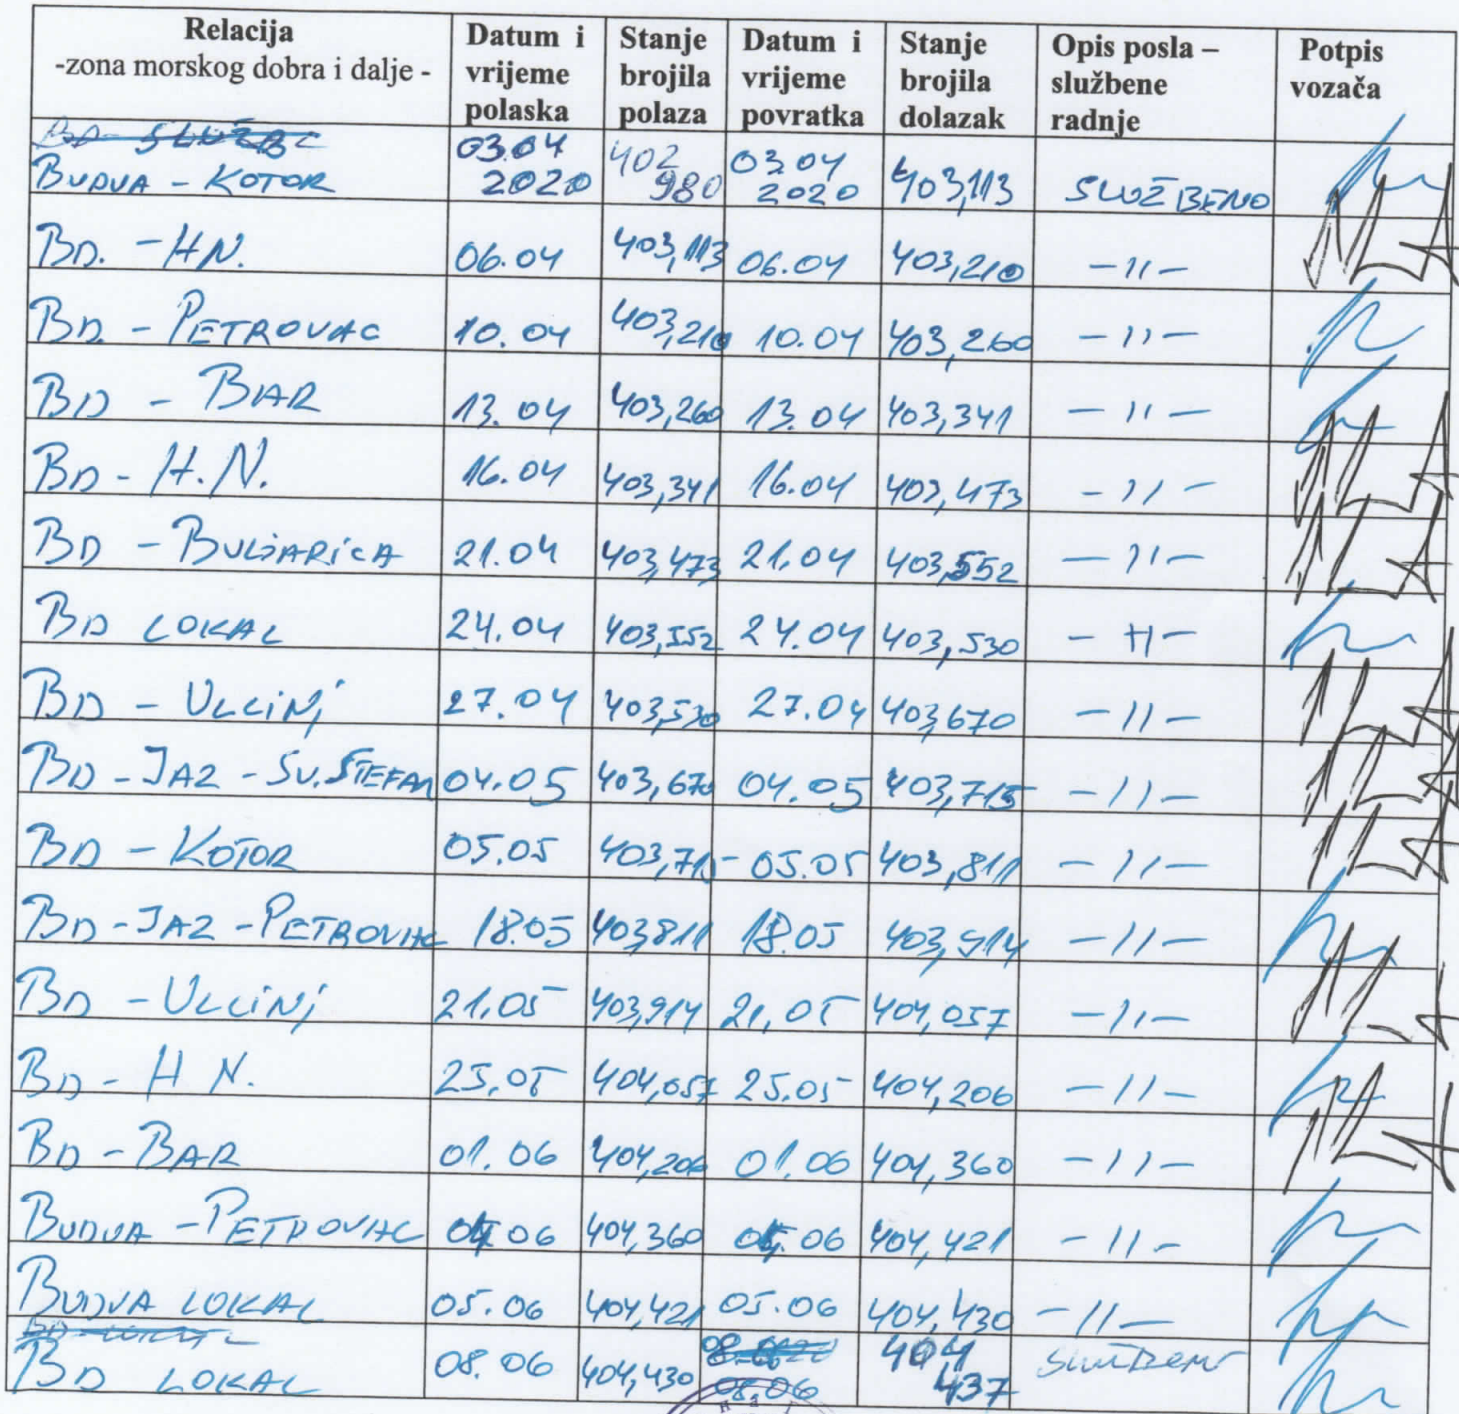 Relacija -zona morskog dobra i dalje - Datum i vrijeme polaska Stanje brojila polaza Datum i vrijeme povratka Stanje brojila dolazak Opis posla – službene radnje Potpis vozača
BUDVA - KOTOR 03.04 2020 402 980 03.04 2020 403,113 SLUŽBENO
BD. - HN. 06.04 403,113 06.04 403,210 -11-
BD. - PETROVAC 10.04 403,210 10.04 403,260 -11-
BD - BAR 13.04 403,260 13.04 403,341 -11-
BD - H.N. 16.04 403,341 16.04 403,473 -11-
BD - BULJARICA 21.04 403,473 21.04 403,552 -11-
BD LOKAL 24.04 403,552 24.04 403,530 -11-
BD - ULCINJ 27.04 403,530 27.04 403,670 -11-
BD - JAZ - SV.STEFAN 04.05 403,670 04.05 403,715 -11-
BD - KOTOR 05.05 403,715 05.05 403,811 -11-
BD - JAZ - PETROVAC 18.05 403,811 18.05 403,914 -11-
BD - ULCINJ 21.05 403,914 21.05 404,057 -11-
BD - H N. 25.05 404,057 25.05 404,206 -11-
BD - BAR 01.06 404,206 01.06 404,360 -11-
BUDVA - PETROVAC 06 404,360 06 404,421 -11-
BUDVA LOKAL 05.06 404,421 05.06 404,430 -11-
BD LOKAL 08.06 404,430 08.06 404 437 SLUŽBENO